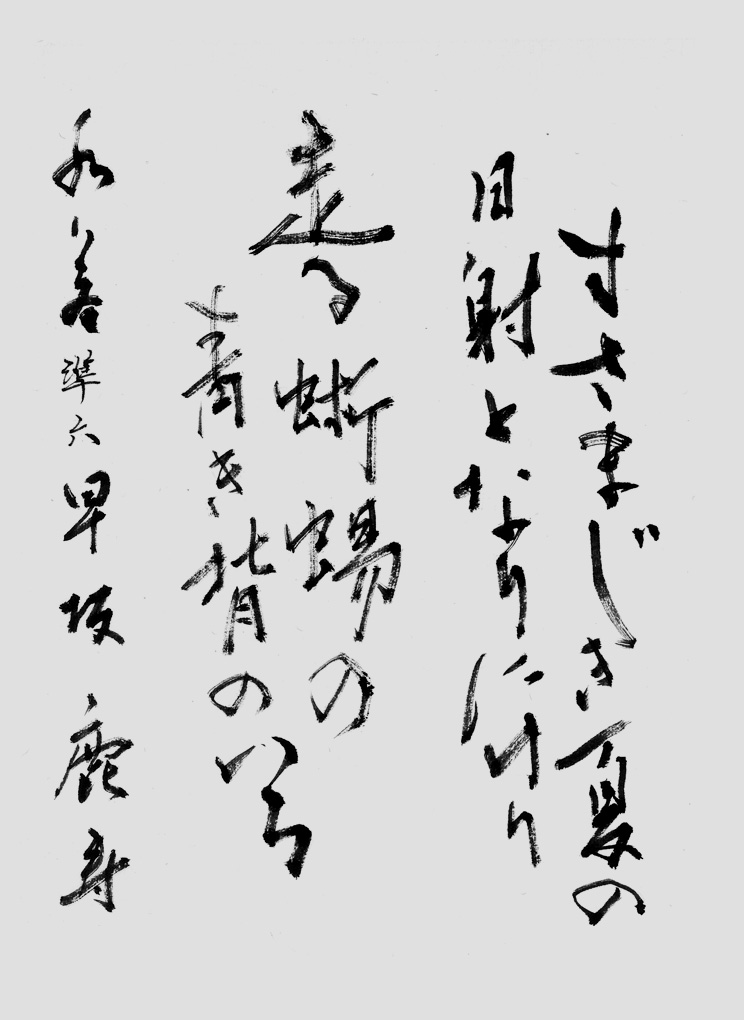 すさまじき夏の
日射となりにけり
走る蜥蜴の
青き背のいろ
準六 早坂 鹿寿